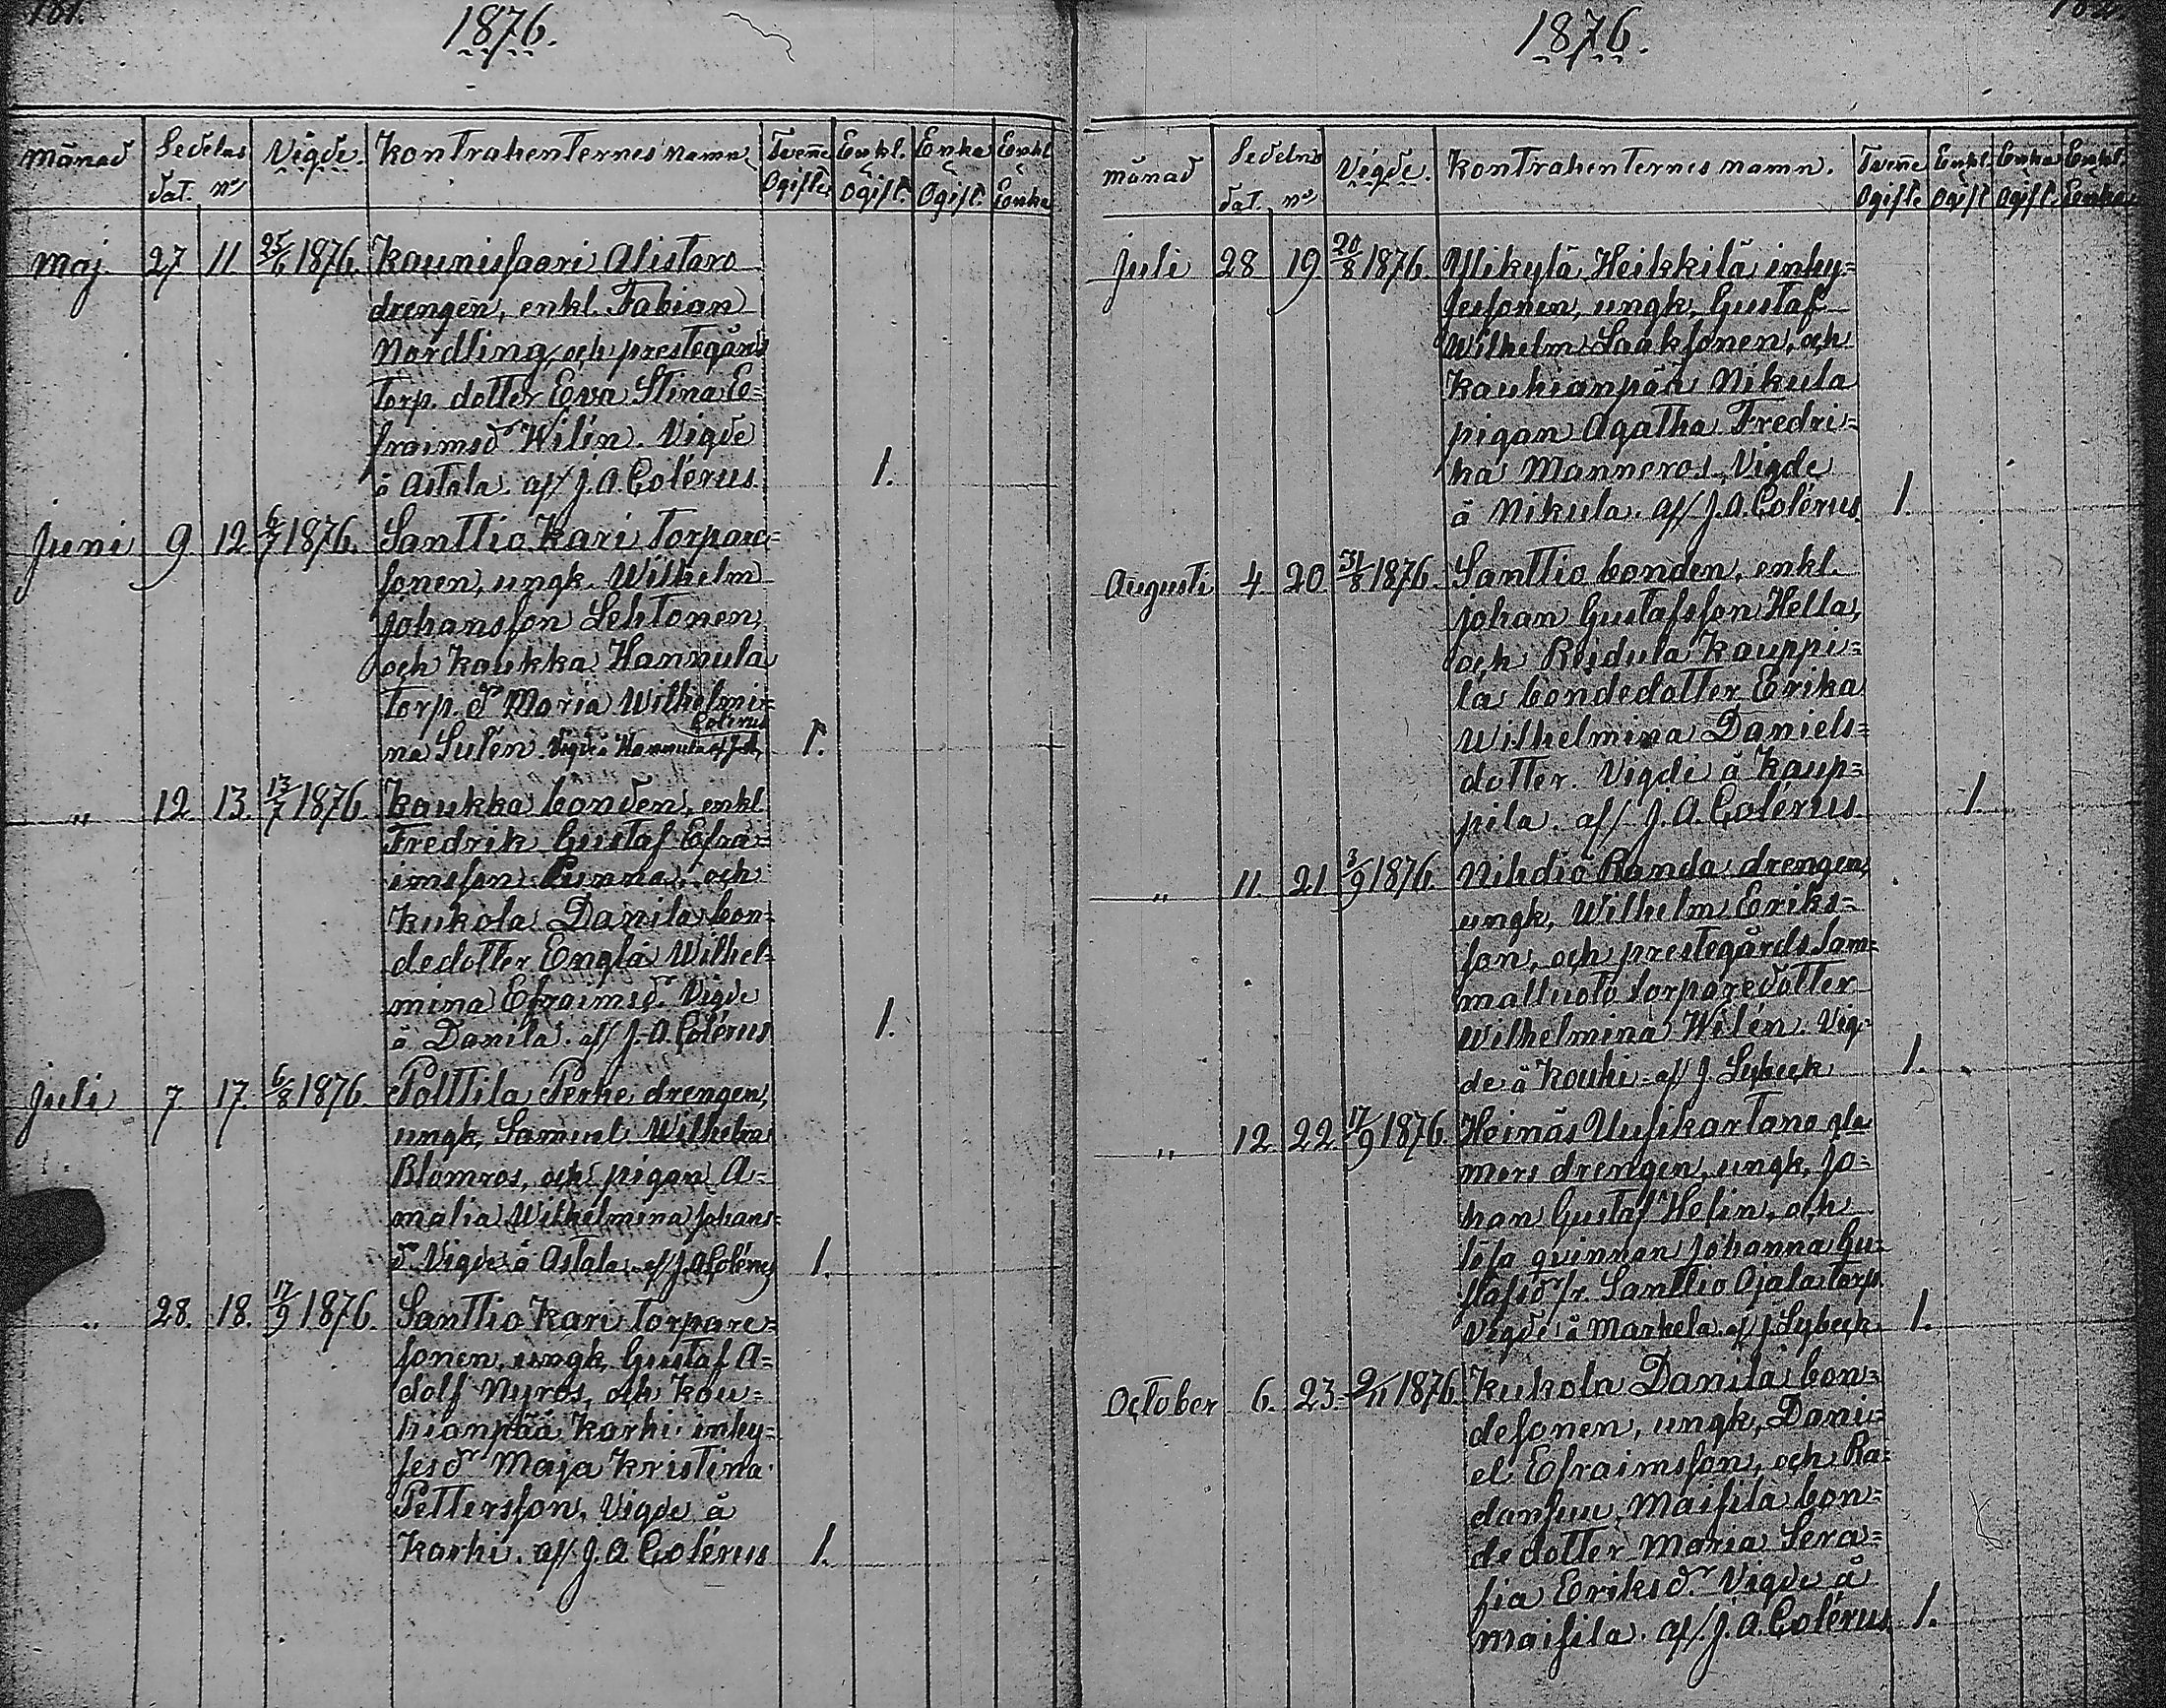 181.
1876.
Månad Sedelns Vigde. Kontrahenternes namn. Tvenne Enkl. Enka Enkl.
dat. no Ogifte Ogift. Ogift. Enka
Maj. 27 11. 25/6 1876. Kaunissaari Alistaro
drengen, enkl. Fabian
Nordling, och prestegårds
torp. dotter Eva Stina E=
fraimsdr Wilén. Vigde
å Astala. af J. A. Colérus. 1.
Juni 9 12. 6/7 1876. Santtio Kari torpare=
sonen, ungk. Wilhelm
Johansson Lehtonen,
och Kaukka Hannula
torp. dr Maria Wilhelmi=
Colérus
na Sulén. Vigde å Hannula af J. A. 1.
" 12. 13. 13/7 1876. Kaukka bonden, enkl.
Fredrik Gustaf Efra=
imsson Punna, och
Kukola Danila bon=
dedotter Engla Wilhel=
mina Efraimsdr. Vigde
å Danila. af J. A. Colérus 1.
Juli 7. 17. 6/8 1876. Polttila Perhe drengen,
ungk. Samuel Wilhelm
Blomros, och pigan A=
malia Wilhelmina Johans=
dr. Vigde å Astala. af J. A. Colérus 1.
" 28. 18. 17/9 1876. Santtio Kari torpare=
sonen, ungk. Gustaf A=
dolf Nyros, och Kau=
hianpää Karhi inhy=
sesdr Maja Kristina
Pettersson. Vigde å
Karhi. af J. A. Colérus 1.
1876.
Månad Sedelns Vigde. Kontrahenternes namn. Tvenne Enkl. Enka Enkl.
dat. no Ogifte Ogift Ogift. Enka
Juli 28 19 20/8 1876. Mikylä Heikkilä inhy=
sessonen, ungk. Gustaf
Wilhelm Saaksonen, och
Kauhianpää Nikula
pigan Agatha Fredri=
ka Manneros. Vigde
å Nikula. af J. A. Colérus. 1.
Augusti 4. 20. 31/8 1876. Santtio bonden, enkl.
Johan Gustafsson Hella,
och Risdula Kauppi=
la bondedotter Erika
Wilhelmina Daniels=
dotter. Vigde å Kaup=
pila. af J. A. Colérus. 1.
" 11. 21 3/9 1876. Nihdiö Randa drengen,
ungk. Wilhelm Eriks=
son, och prestegårds Sam=
maltuoto torparedotter
Wilhelmina Wilén. Vig=
de å Kouhi. af J. Lybeck 1.
" 12. 22. 17/9 1876. Heinäs Uusikartano gla
mors drengen, ungk. Jo=
han Gustaf Helin, och
lösa qvinnan Johanna Gu=
stafsdr fr. Santtio Ojala torp.
Vigde å Markela. af J. Lybeck 1.
October 6. 23. 2/11 1876. Kukola Danila bon=
desonen, ungk. Dani=
el Efraimsson, och Ra=
dansuu Maisila bon=
dedotter Maria Sera=
fia Eriksdr. Vigde å
Maisila. af J. A. Colérus. 1.